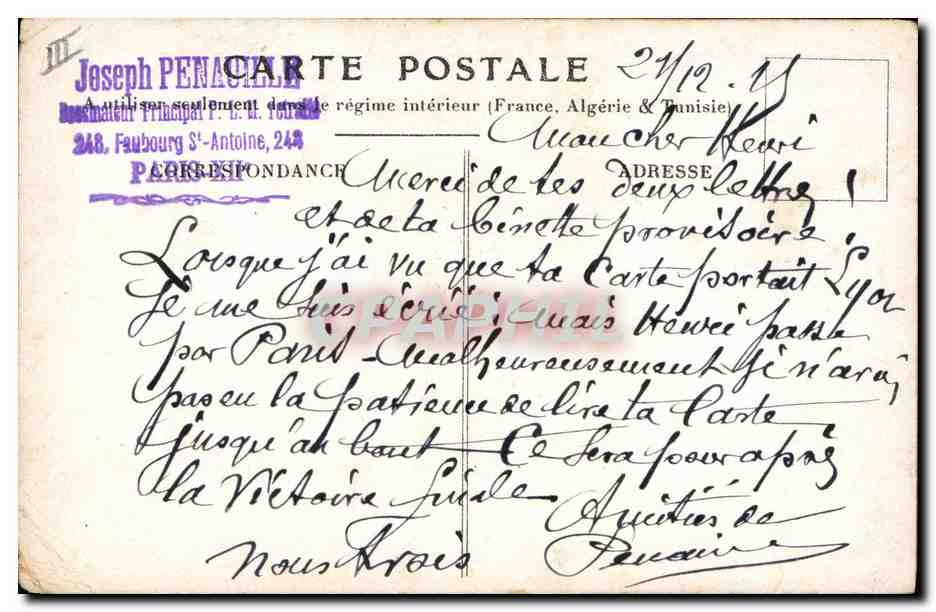 III
Joseph PENACILLE
CARTE POSTALE
21/12.15
A utiliser seulement dans le régime intérieur (France, Algérie & Tunisie)
Principal P. L. M.
248, Faubourg St-Antoine, 248
PARIS-XIIe
CORRESPONDANCE
ADRESSE
Mon cher Henri
Merci de tes deux lettres
et de ta binette provisoire !
Lorsque j'ai vu que ta Carte portait Lyon
je me suis écrié : mais Henri passe
par Paris - Malheureusement je n'avais
pas eu la patience de lire ta Carte
jusqu'au bout - Ce sera pour après
la Victoire finale
Amitiés de
nous trois
CPAPHIL